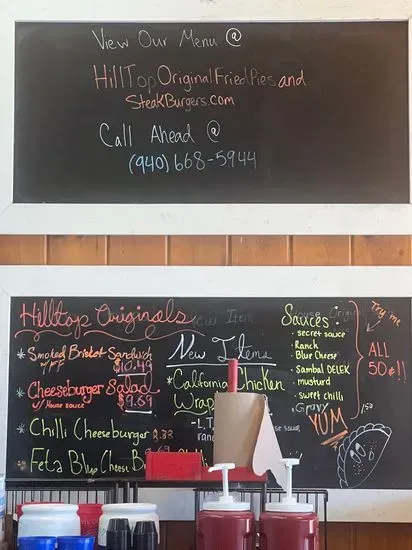 View Our Menu @
HillTopOriginalFriedPies and
SteakBurgers.com
Call Ahead @
(940) 668-5944
Hilltop Originals
* Smoked Brisket Sandwich
w/ FF $10.49
* Cheeseburger Salad
w/ House sauce $9.69
* Chilli Cheeseburger 8.88
Feta Blue Cheese B
New Item
New Items
*California Chicken
Wrap
- L.T
ranc
se sauce
House Original
Sauces:
• secret sauce
• Ranch
• Blue Cheese
• sambal OELEK
• mustard
• sweet chilli
• Gravy
Try me
ALL
50¢!!
YUM